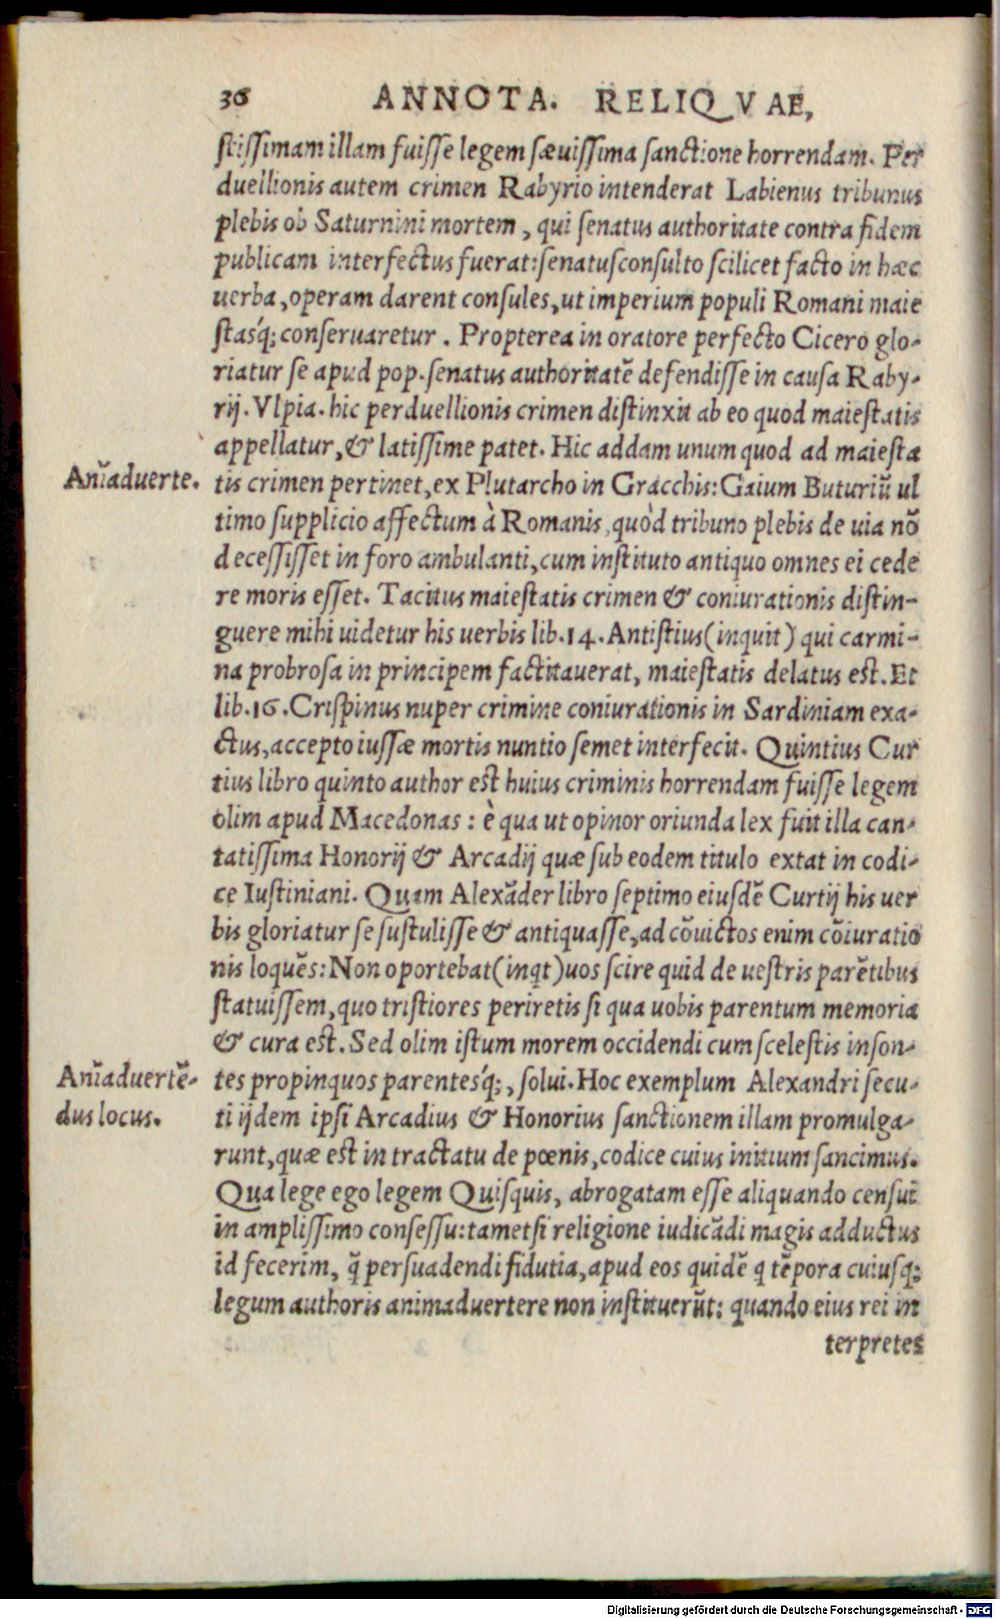 36 ANNOTA. RELIQVAE,
stissimam illam fuisse legem sæuissima sanctione horrendam. Per
duellionis autem crimen Rabyrio intenderat Labienus tribunus
plebis ob Saturnini mortem, qui senatus authoritate contra fidem
publicam interfectus fuerat: senatusconsulto scilicet facto in hæc
uerba, operam darent consules, ut imperium populi Romani maie
stasq́; conseruaretur. Propterea in oratore perfecto Cicero glo-
riatur se apud pop. senatus authoritatē defendisse in causa Raby-
rij. Vlpia. hic perduellionis crimen distinxit ab eo quod maiestatis
appellatur, & latissime patet. Hic addam unum quod ad maiesta
Anīaduerte. tis crimen pertinet, ex Plutarcho in Gracchis: Gaium Buturiū ul
timo supplicio affectum à Romanis, quòd tribuno plebis de uia nō
decessisset in foro ambulanti, cum instituto antiquo omnes ei cede
re moris esset. Tacitus maiestatis crimen & coniurationis distin-
guere mihi uidetur his uerbis lib. 14. Antistius (inquit) qui carmi-
na probrosa in principem factitauerat, maiestatis delatus est. Et
lib. 16. Crispinus nuper crimine coniurationis in Sardiniam exa-
ctus, accepto iussæ mortis nuntio semet interfecit. Quintius Cur
tius libro quinto author est huius criminis horrendam fuisse legem
olim apud Macedonas: è qua ut opinor oriunda lex fuit illa can-
tatissima Honorij & Arcadij quæ sub eodem titulo extat in codi-
ce Iustiniani. Quam Alexāder libro septimo eiusdē Curtij his uer
bis gloriatur se sustulisse & antiquasse, ad cōuictos enim cōiuratio
nis loquēs: Non oportebat (inqt) uos scire quid de uestris parētibus
statuissem, quo tristiores periretis si qua uobis parentum memoria
& cura est. Sed olim istum morem occidendi cum scelestis inson-
Anīaduertē- tes propinquos parentesq́;, solui. Hoc exemplum Alexandri secu-
dus locus. ti ijdem ipsi Arcadius & Honorius sanctionem illam promulga-
runt, quæ est in tractatu de pœnis, codice cuius initium sancimus.
Qua lege ego legem Quisquis, abrogatam esse aliquando censui
in amplissimo consessu: tametsi religione iudicādi magis adductus
id fecerim, q̄ persuadendi fidutia, apud eos quidē q tēpora cuiusq;
legum authoris animaduertere non instituerūt: quando eius rei in
terpretes
Digitalisierung gefördert durch die Deutsche Forschungsgemeinschaft - DFG